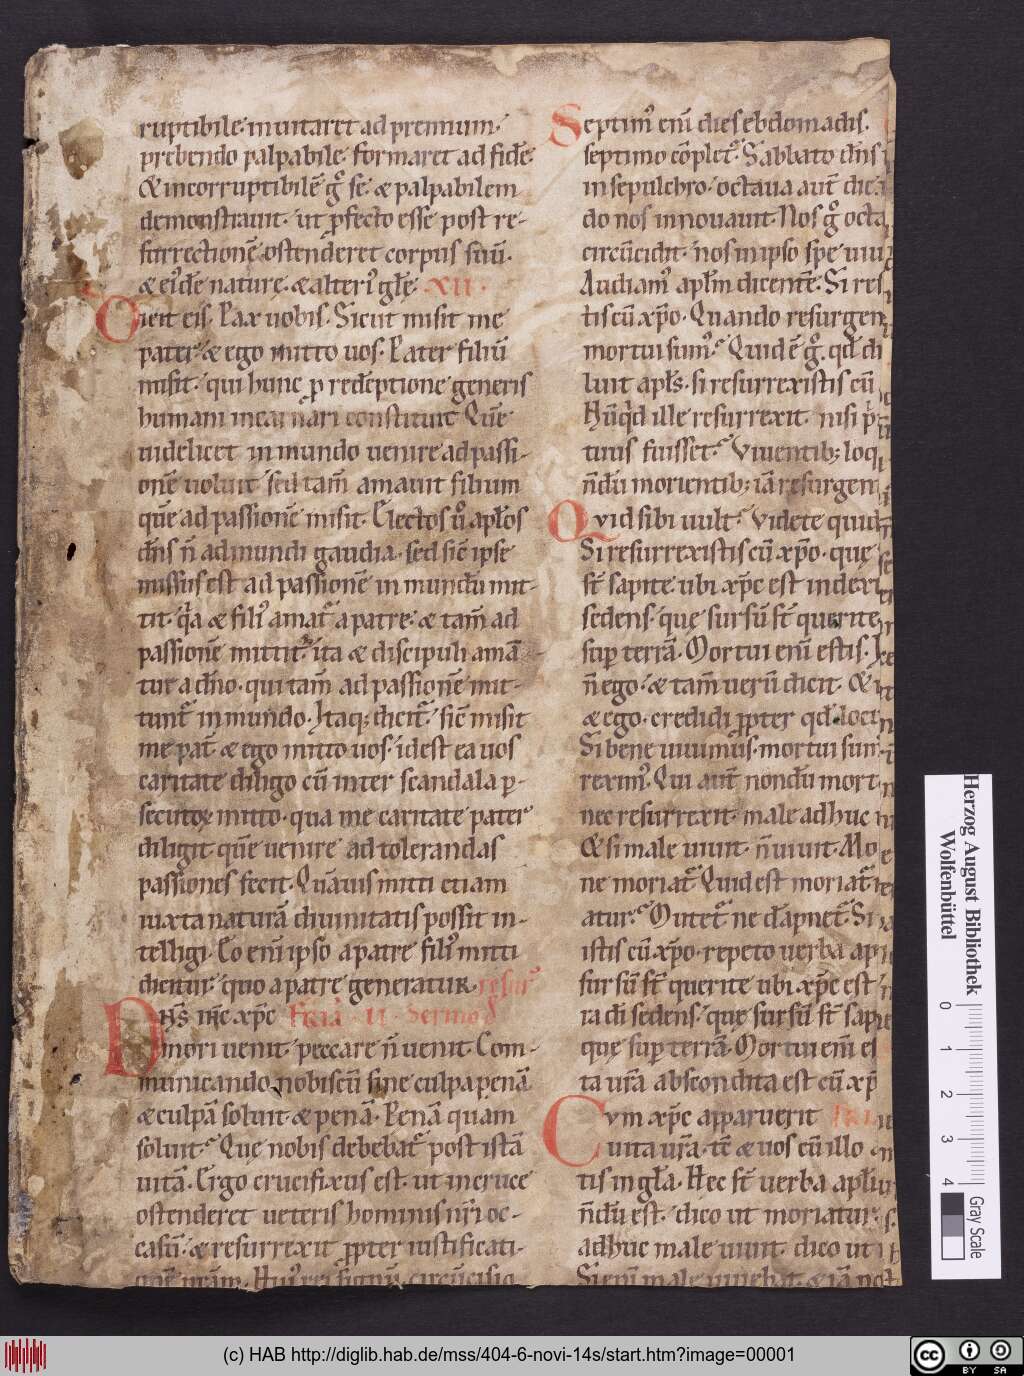 ruptibile· inuitaret ad premium·
prebendo palpabile· formaret ad fidē·
& incorruptibilē g̊ se· & palpabilem
demonstrauit· ut ꝑfecto esse post re-
surrectionē ostenderet corpus suū·
& eiꝰdē nature· & alteriꝰ glē· XII·
Dicit eis· Pax uobis· Sicut misit me
pater & ego mitto uos· Pater filiū
misit· qui hunc ꝓ redēptione generis
humani incarnari constituit Quē
uidelicet in mundo uenire ad passi-
onē uoluit· sed tam̄ amauit filium
quē ad passionē misit· Electos ū apłos
dn̄s n̄ ad mundi gaudia· sed sic̄ ipse
missus est ad passionē in mundū mit-
tit· q̄a & filiꝰ amat᷑ a patre· & tam̄ ad
passionē mittit᷑· ita & discipuli amā
tur a dn̄o· qui tam̄ ad passionē mit-
tunt᷑ in mundo· Itaq; dicit᷑· sic̄ misit
me pat̄ & ego mitto uos· idest ea uos
caritate diligo cū inter scandala ꝑ-
secutoꝝ mitto· qua me caritate pater
diligit quē uenire ad tolerandas
passiones fecit· Quāuis mitti etiam
iuxta naturā diuinitatis possit in-
telligi· Eo eni᷑ ipso a patre filiꝰ mitti
dicitur quo a patre generatur· resur
Dn̄s ih̄c xp̄c Fr̄ia· II· Sermo
mori uenit· peccare n̄ uenit· Com-
municando nobiscū sine culpa penā
& culpā soluit & penā· Penā quam
soluit᷑· Quę nobis debebat᷑ post istā
uitā· Ergo crucifixus est· ut in cruce
ostenderet ueteris hominis nr̄i oc-
casū· & resurrexit ꝓpter iustificati-
onē urām· Huiꝰ rei signū circūcisio
Septimꝰ enī dies ebdomadis·
septimo cōplet᷑· Sabbato dn̄s
in sepulchro· octaua aut̄ die
do nos innouauit· Nos g̊ octa
circūcidit· nos in ipso spe uiu
Audiamꝰ apłm dicentē· Si res
tis cū xp̄o· Quando resurgen
mortui sumꝰ᷑ Quid ē g̊· qd̄ di
luit apłs· si resurrexistis cū
Nūq̄d ille resurrexit· nisi
tuus fuisset᷑· Viuentib; loq
n̄dū morientib; iā resurgen
Qvid sibi uult᷑· Videte quid
Si resurrexistis cū xp̄o· quę
st̄ sapite· ubi xp̄c est in dex
sedens· quę sursū st̄ querite
sup terrā· Mortui enī estis·
n̄ ego· & tam̄ uerū dicit· &
& ego· credidi ꝓpter qd̄ loc
Si bene uiuimus· mortui sum
reximꝰ· Qui aut̄ nondū mort
nec resurrexit· male adhuc
& si male uiuit· n̄ uiuit· Mo
ne moriat᷑· Quid est moriat᷑
atur᷑· Mutet᷑ ne dāpnet᷑· Si
istis cū xp̄o· repeto uerba ap
sursū st̄ querite ubi xp̄c est
ra di sedens· quę sursū st̄ sap
quę sup terrā· Mortui enī es
ta ur̄a abscondita est cū xp̄
Cvm xp̄c apparuerit
uita ur̄a· tc̄ & uos cū illo
tis in glā· Hec st̄ uerba apłi
n̄dū est· dico ut moriatur·
adhuc male uiuit· dico ut
Si enī male uiuebat· & iā
Herzog August Bibliothek
Wolfenbüttel
0 1 2 3 4
Gray Scale
(c) HAB http://diglib.hab.de/mss/404-6-novi-14s/start.htm?image=00001
cc BY SA